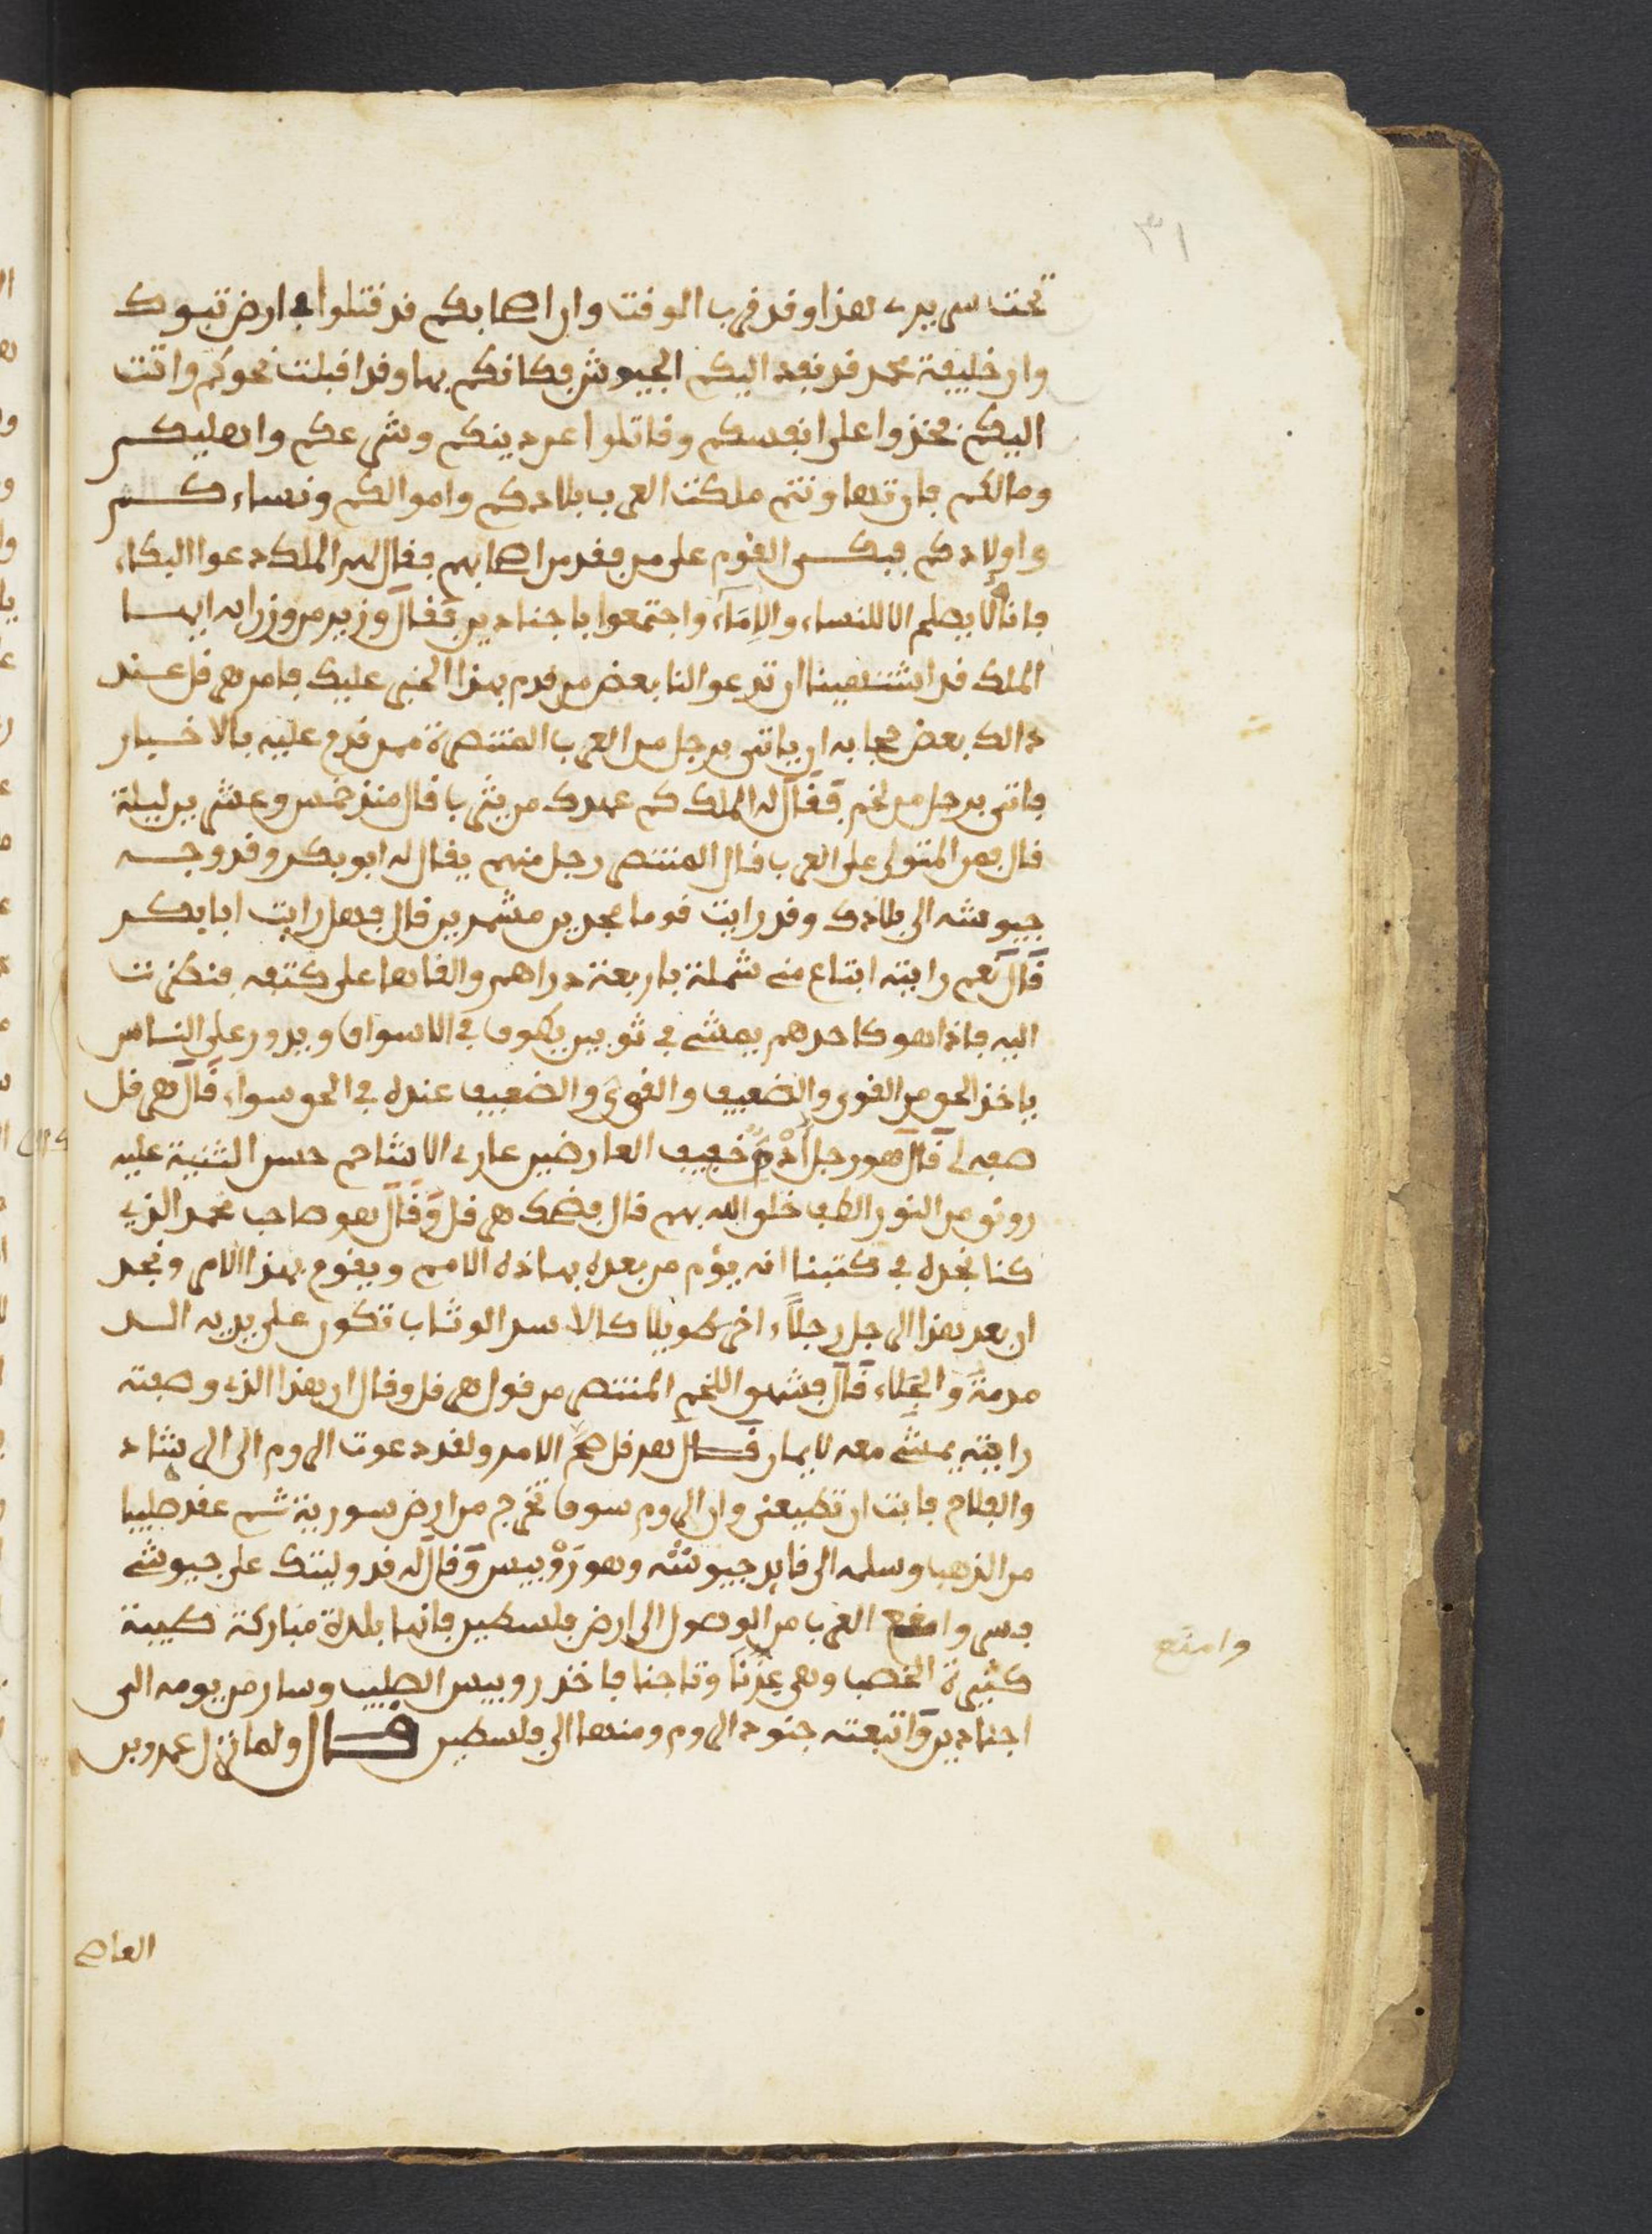 ٣١
تحت سريرى هذا وقد قرب الوقت وان اصحابكم قد قتلوا في ارض تبوك
وان خليفة محمد قد نفذ اليكم الجيوش فكانكم بها وقد اقبلت نحوكم واتت
اليكم فخذوا على انفسكم وقاتلوا عن دينكم وشرعكم واهليكم
ومالكم فان تهاونتم ملكت العرب بلادكم واموالكم ونساءكم
واولادكم فبكى القوم على من فقد من اصحابهم فقال لهم الملك دعوا البكاء
فانه لا يصلح الا للنساء والاماء واجتمعوا باجنادين فقال وزير من وزرايه ايها
الملك قد اشتهينا ان تدعوا لنا بعض من قدم بهذا الخبر عليك فامر هرقل عند
ذالك بعض حجابه ان ياتى برجل من العرب المتنصرة ممن قدم عليه بالاخبار
فاتى برجل من لخم فقال له الملك كم عهدك من يثرب قال منذ خمس وعشرين ليلة
قال فمن المتولى على العرب قال المتنصر رجل منهم يقال له ابو بكر وقد وجه
جيوشه الى بلادك وقد رايت قوما مجدين مشمرين قال فهل رايت ابا بكر
قال نعم رايته ابتاع منى شملة باربعة دراهم والقاها على كتفه فنظرت
اليه فاذا هو كاحدهم يمشى في ثوبين يطوف في الاسواق ويدور على الناس
ياخذ الحق من القوى والضعيف والقوى والضعيف عنده في الحق سواء قال هرقل
صفه لى قال هو رجل آدم خفيف العارضين عارى الاشاجع حسن الثنية عليه
رونق من النور الطف خلق الله بهم قال فضحك هرقل وقال هو صاحب محمد الذى
كنا نجده في كتبنا انه يؤم من بعده بهاذه الامم ويقوم بهذا الامر ونجد
ان بعد هذا الرجل رجلاء اخر طويلا كالاسد الوثاب تكون على يديه السد
مدمة والجلاء قال فشهق اللخمى المتنصر من قول هرقل وقال ان هذا الذى وصفته
رايته يمشى معه لا يفارقه قال هرقل صح الامر ولقد دعوت الروم الى الرشاد
والفلاح فابت ان تطيعنى وان الروم سوف تخرج من ارض سورية ثم عقد صليبا
من الذهب وسلمه الى قايد جيوشه وهو روبيس وقال له قد وليتك على جيوشى
فسر وامنع العرب من الوصول الى ارض فلسطين فانها بلدة مباركة طيبة
وامنع
كثيرة الخصب وهى عزنا وتاجنا فاخذ روبيس الصليب وسار من يومه الى
اجنادين واتبعته جنود الروم ومنها الى فلسطين قال ولما نزل عمرو بن
العاص